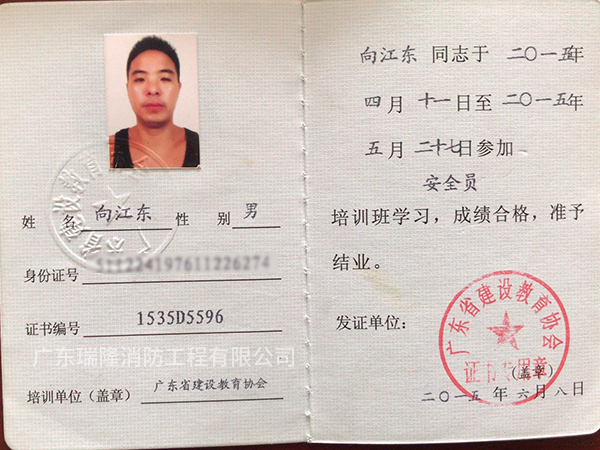 姓 名 向江东 性 别 男
身份证号
证书编号 1535D5596
广东瑞隆消防工程有限公司
培训单位（盖章） 广东省建设教育协会
向江东 同志于 二〇一五年
四月 十一日至二〇一五年
五月 二十七日参加
安全员
培训班学习，成绩合格，准予
结业。
发证单位：
广东省建设教育协会
证书专用章
（盖章）
二〇一五 年 六 月 八 日